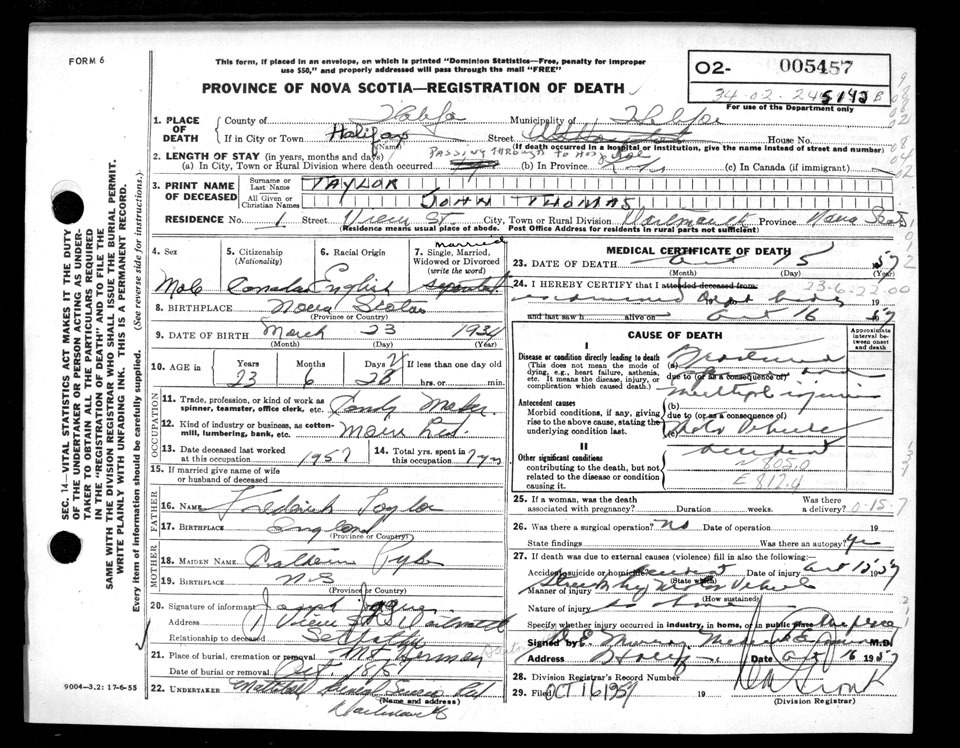 FORM 6
This form, if placed in an envelope, on which is printed "Dominion Statistics—Free, penalty for improper
use $50," and properly addressed will pass through the mail "FREE"
PROVINCE OF NOVA SCOTIA—REGISTRATION OF DEATH
O2- 005457
34-02-24 5142 B
For use of the Department only
SEC. 14—VITAL STATISTICS ACT MAKES IT THE DUTY
OF THE UNDERTAKER OR PERSON ACTING AS UNDER-
TAKER TO OBTAIN ALL THE PARTICULARS REQUIRED
IN THE "REGISTRATION OF DEATH" AND TO FILE THE
SAME WITH THE DIVISION REGISTRAR WHO SHALL ISSUE THE BURIAL PERMIT.
WRITE PLAINLY WITH UNFADING INK. THIS IS A PERMANENT RECORD.
Every item of information should be carefully supplied. (See reverse side for instructions.)
1. PLACE OF DEATH
County of Halifax Municipality of Halifax
If in City or Town Halifax (Name) Street House No.
(If death occurred in a hospital or institution, give the name instead of street and number)
2. LENGTH OF STAY (in years, months and days) PASSING THROUGH TO
(a) In City, Town or Rural Division where death occurred (b) In Province Life (c) In Canada (if immigrant)
3. PRINT NAME OF DECEASED
Surname or Last Name TAYLOR
All Given or Christian Names JOHN THOMAS
RESIDENCE No. 1 Street View St. City, Town or Rural Division Dartmouth Province Nova Scotia
(Residence means usual place of abode. Post Office Address for residents in rural parts not sufficient)
4. Sex Male
5. Citizenship (Nationality) Canadian
6. Racial Origin English
7. Single, Married, Widowed or Divorced (write the word) married separated
8. BIRTHPLACE Nova Scotia
(Province or Country)
9. DATE OF BIRTH March 23 1934
(Month) (Day) (Year)
10. AGE in Years 23 Months 6 Days If less than one day old hrs. or min.
OCCUPATION
11. Trade, profession, or kind of work as spinner, teamster, office clerk, etc. Candy Maker
12. Kind of industry or business, as cotton-mill, lumbering, bank, etc. Moirs Ltd.
13. Date deceased last worked at this occupation 1957
14. Total yrs. spent in this occupation 7 yrs
15. If married give name of wife or husband of deceased
FATHER
16. Name Frederick Taylor
17. Birthplace England
(Province or Country)
MOTHER
18. Maiden Name Pyke
19. Birthplace N.S
(Province or Country)
20. Signature of informant Joseph
Address 1 View St Dartmouth
Relationship to deceased Step father
21. Place of burial, cremation or removal Mt Herman
Date of burial or removal Oct 18/57
22. UNDERTAKER Funeral Service Ltd
(Name and address)
Dartmouth
9004—3.2: 17-6-55
MEDICAL CERTIFICATE OF DEATH
23. DATE OF DEATH Oct 15 1957
(Month) (Day) (Year)
24. I HEREBY CERTIFY that I attended deceased from: 23-6-22-00
examined dead body 19
and last saw h alive on Oct 16 1957
CAUSE OF DEATH
Approximate interval between onset and death
I
Disease or condition directly leading to death
(This does not mean the mode of dying, e.g., heart failure, asthenia, etc. It means the disease, injury, or complication which caused death.)
(a) Fractured
due to (or as a consequence of)
multiple injuries
Antecedent causes
Morbid conditions, if any, giving rise to the above cause, stating the underlying condition last.
(b)
due to (or as a consequence of)
(c) Motor Vehicle
accident
II
Other significant conditions
contributing to the death, but not related to the disease or condition causing it.
N 805.0
E 812.4
25. If a woman, was the death associated with pregnancy? Duration weeks. Was there a delivery? 0-15-7
26. Was there a surgical operation? no Date of operation 19
State findings Was there an autopsy? yes
27. If death was due to external causes (violence) fill in also the following:
Accident, suicide or homicide accident Date of injury Oct 15 1957
(State which)
Manner of injury Struck by Motor Vehicle
(How sustained)
Nature of injury as above
Specify whether injury occurred in industry, in home, or in public place
Signed by Murray Medical Examiner M.D.
Address Halifax Date Oct 16 1957
28. Division Registrar's Record Number
29. Filed OCT 16 1957 19
(Division Registrar)